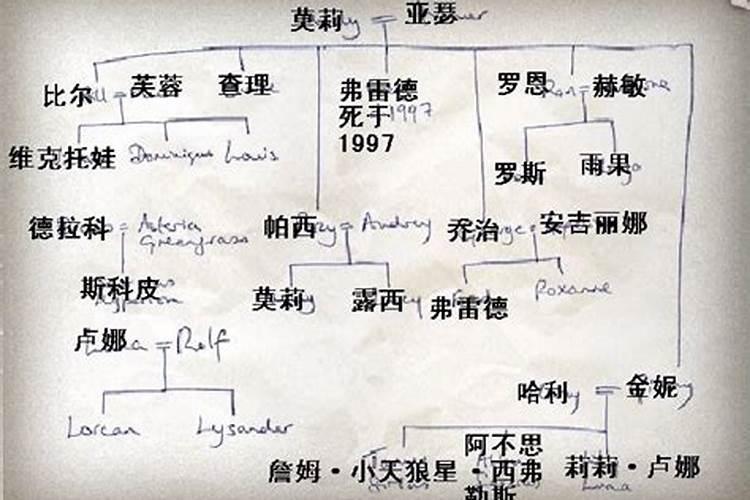 莫莉 = 亚瑟
比尔 = 芙蓉 查理 弗雷德 罗恩 = 赫敏
死于 1997
1997
维克托娃 Dominique Louis 罗斯 雨果
德拉科 = Asteria Greengrass 帕西 = Audrey 乔治 = 安吉丽娜
斯科皮 莫莉 露西 弗雷德 Roxanne
卢娜 = Rolf
Lorcan Lysander 哈利 = 金妮
詹姆·小天狼星 阿不思·西弗勒斯 莉莉·卢娜